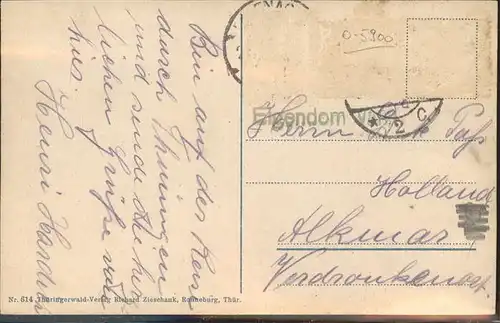 Bin auf der Reise
durch Thüringen
und sende die herz
lichen Grüße von
hier.
Henri Hardin
O-5900
Eigendom
Herrn Paß
Holland
Alkmar
Verdronkenoord
Nr. 614 Thüringerwald-Verlag Richard Zieschank, Ronneburg, Thür.